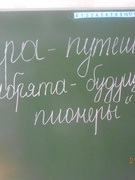 ра - путеш
ябрята - будущ
пионеры